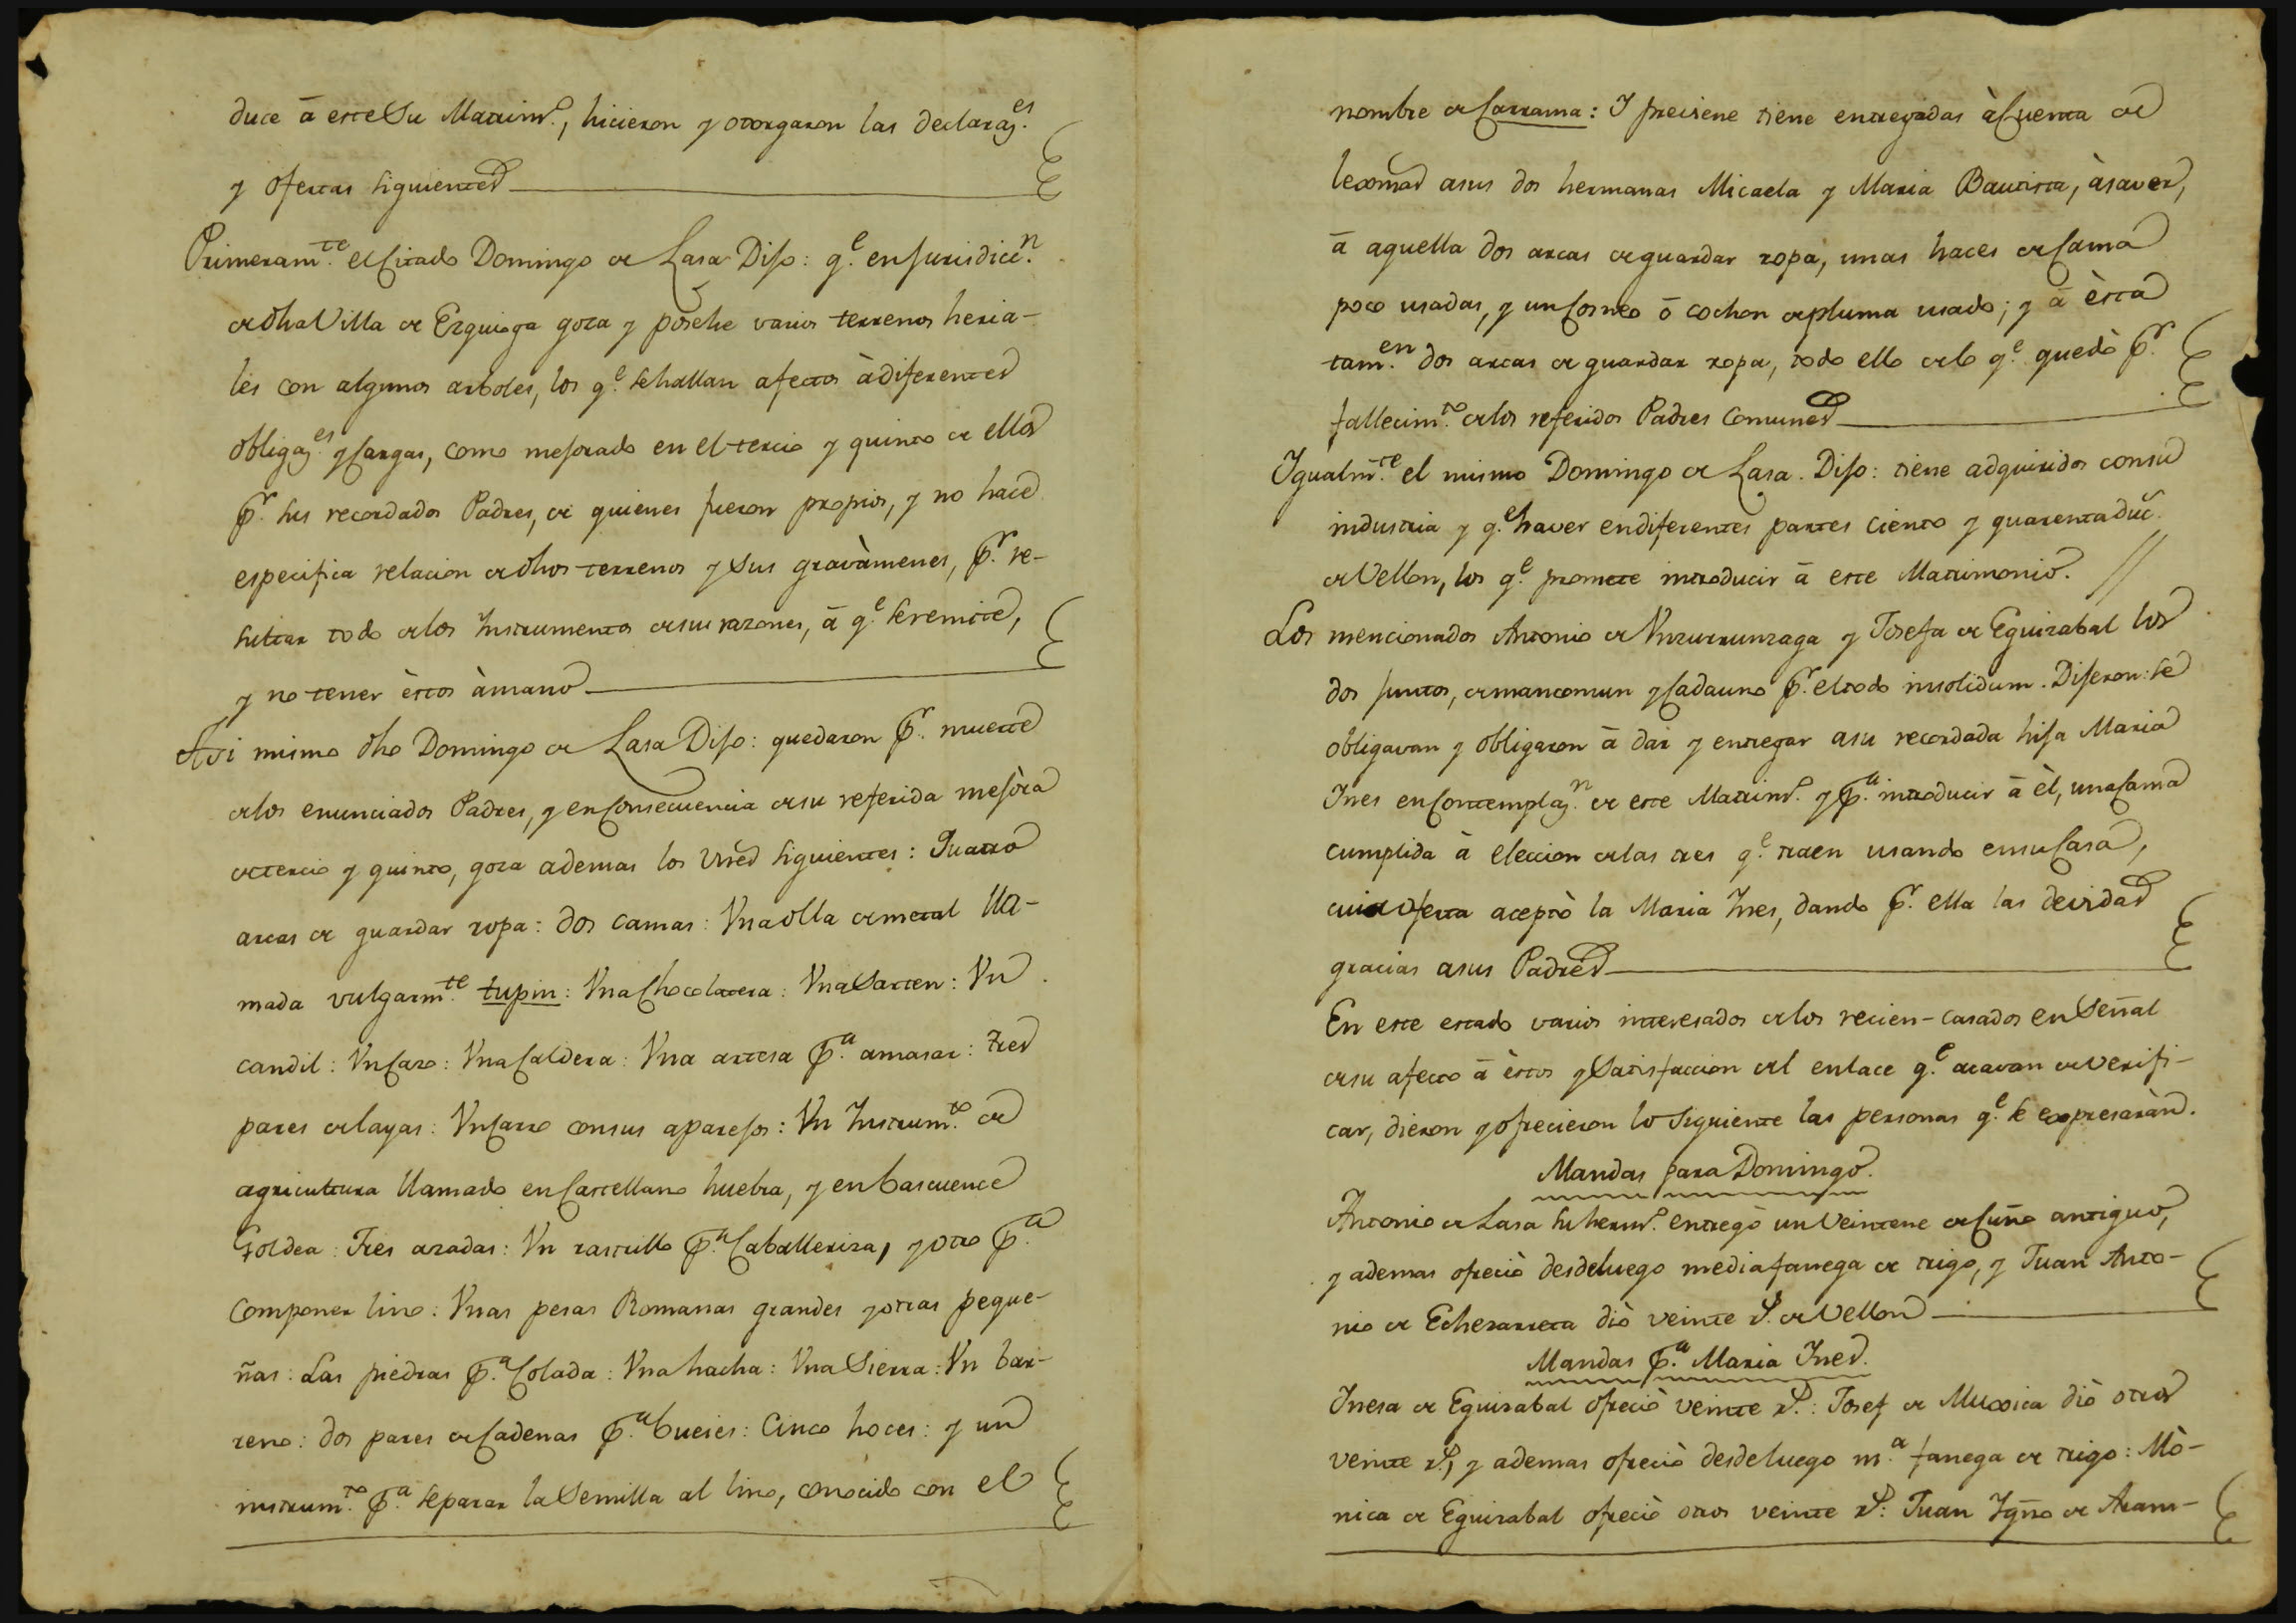 duce á este Su Matrimº, hicieron y otorgaron las declarazes
y ofertas siguientes
Primeramte el Citado Domingo de Lasa Dijo: qe en Jurisdicn
de dha Villa de Ezquioga goza y posehe varios terrenos heria-
les con algunos arboles, los qe se hallan afectos à diferentes
obligazes y Cargas, como mejorado en el tercio y quinto de ellos
pr sus recordados Padres, de quienes fueron propios, y no hace
especifica relacion de dhos terrenos y Sus gravàmenes, pr re-
sultar todo de los Instrumentos de su razones, á qe se remite,
y no tener èstos àmano
Asi mismo dho Domingo de Lasa Dijo: quedaron pr muerte
de los enunciados Padres, y en Consecuencia de su referida mejòra
de tercio y quinto, goza ademas los vnes siguientes: Quatro
arcas de guardar ropa: dos camas: Vna olla de metal lla-
mada vulgarmte tupin: Vna Chocolatera: Vna Sarten: Vn
candil: Vn Cazo: Vna Caldera: Vna artesa pa amasar: tres
pares de layas: Vn Carro con sus aparejos: Vn Instrumto de
agricultura llamado en Castellano huebra, y en bascuence
Goldea: Tres azadas: Vn rastrillo pa Caballeriza, y otro pa
componer lino: Vnas pesas Romanas grandes y otras peque-
ñas: Las piedras pa Colada: Vna hacha: Vna Sierra: Vn bar-
reno: dos pares de Cadenas pa bueies: Cinco hoces: y un
instrumto pa separar la Semilla al lino, conocido con el
nombre de Carrama: I previene tiene entregadas à Cuenta de
lexmas a sus dos hermanas Micaela y Maria Bautista, à saver,
á aquella dos arcas de guardar ropa, unas haces de Cama
poco usadas, y un Cosneo ó cochon de pluma usado; y á èsta
tamen dos arcas de guardar ropa, todo ello de lo qe quedò pr
fallecimto de los referidos Padres Comunes
Igualmte el mismo Domingo de Lasa. Dijo: tiene adquiridos con su
industria y qe haver en diferentes partes ciento y quarenta duc.
de Vellon, los qe promete introducir á este Matrimonio. //
Los mencionados Antonio de Vnzurrunzaga y Josefa de Eguizabal los
dos juntos, de mancomun y Cada uno pr el todo insolidum. Dijeron: se
obligavan y obligaron á dar y entregar a su recordada hija Maria
Ines en Contemplazn de este Matrimº y pa introducir á èl, una Cama
cumplida à eleccion de las tres qe traen usando en su Casa,
cuia oferta aceptò la Maria Ines, dando pr ella las devidas
gracias a sus Padres
En este estado varios interesados de los recien-casados en Señal
de su afecto á èstos y Satisfaccion del enlace qe acavan de verifi-
car, dieron y ofrecieron lo Siguiente las personas qe se expresaràn.
Mandas para Domingo.
Antonio de Lasa su hermº entregò un Veintene de Cuño antiguo,
y ademas ofreciò desdeluego media fanega de trigo, y Juan Anto-
nio de Echezarreta diò veinte rs. de Vellon
Mandas pa Maria Ines.
Inesa de Eguizabal ofreciò veinte rs.: Josef de Muxica diò otros
veinte rs., y ademas ofreciò desdeluego ma fanega de trigo: Mò-
nica de Eguizabal ofreciò otros veinte rs: Juan Ygno de Aram-